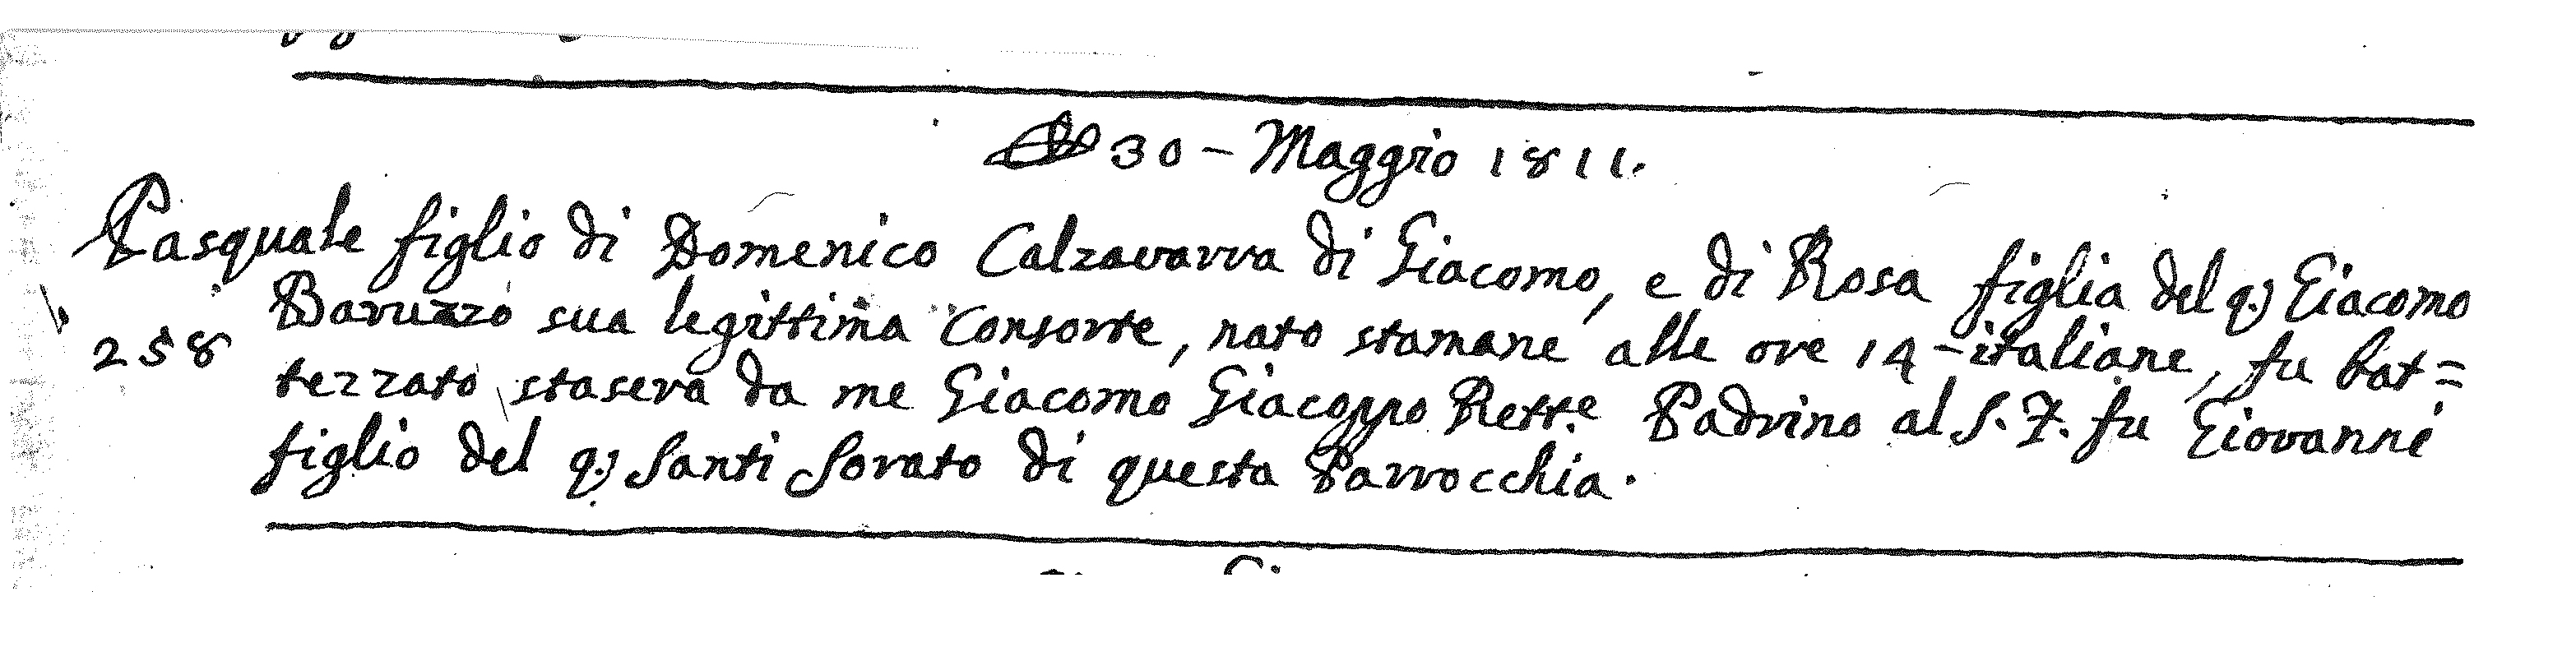 30 - Maggio 1811.
Pasquale figlio di Domenico Calzavarra di Giacomo, e di Rosa figlia del q.) Giacomo
258 Baruzzo sua legittima Consorte, nato stamane alle ore 14 - italiane, fu bat=
tezzato stasera da me Giacomo Giacoppo Rett.e Padrino al S. F. fu Giovanni
figlio del q.) Santi Sorato di questa Parrocchia.